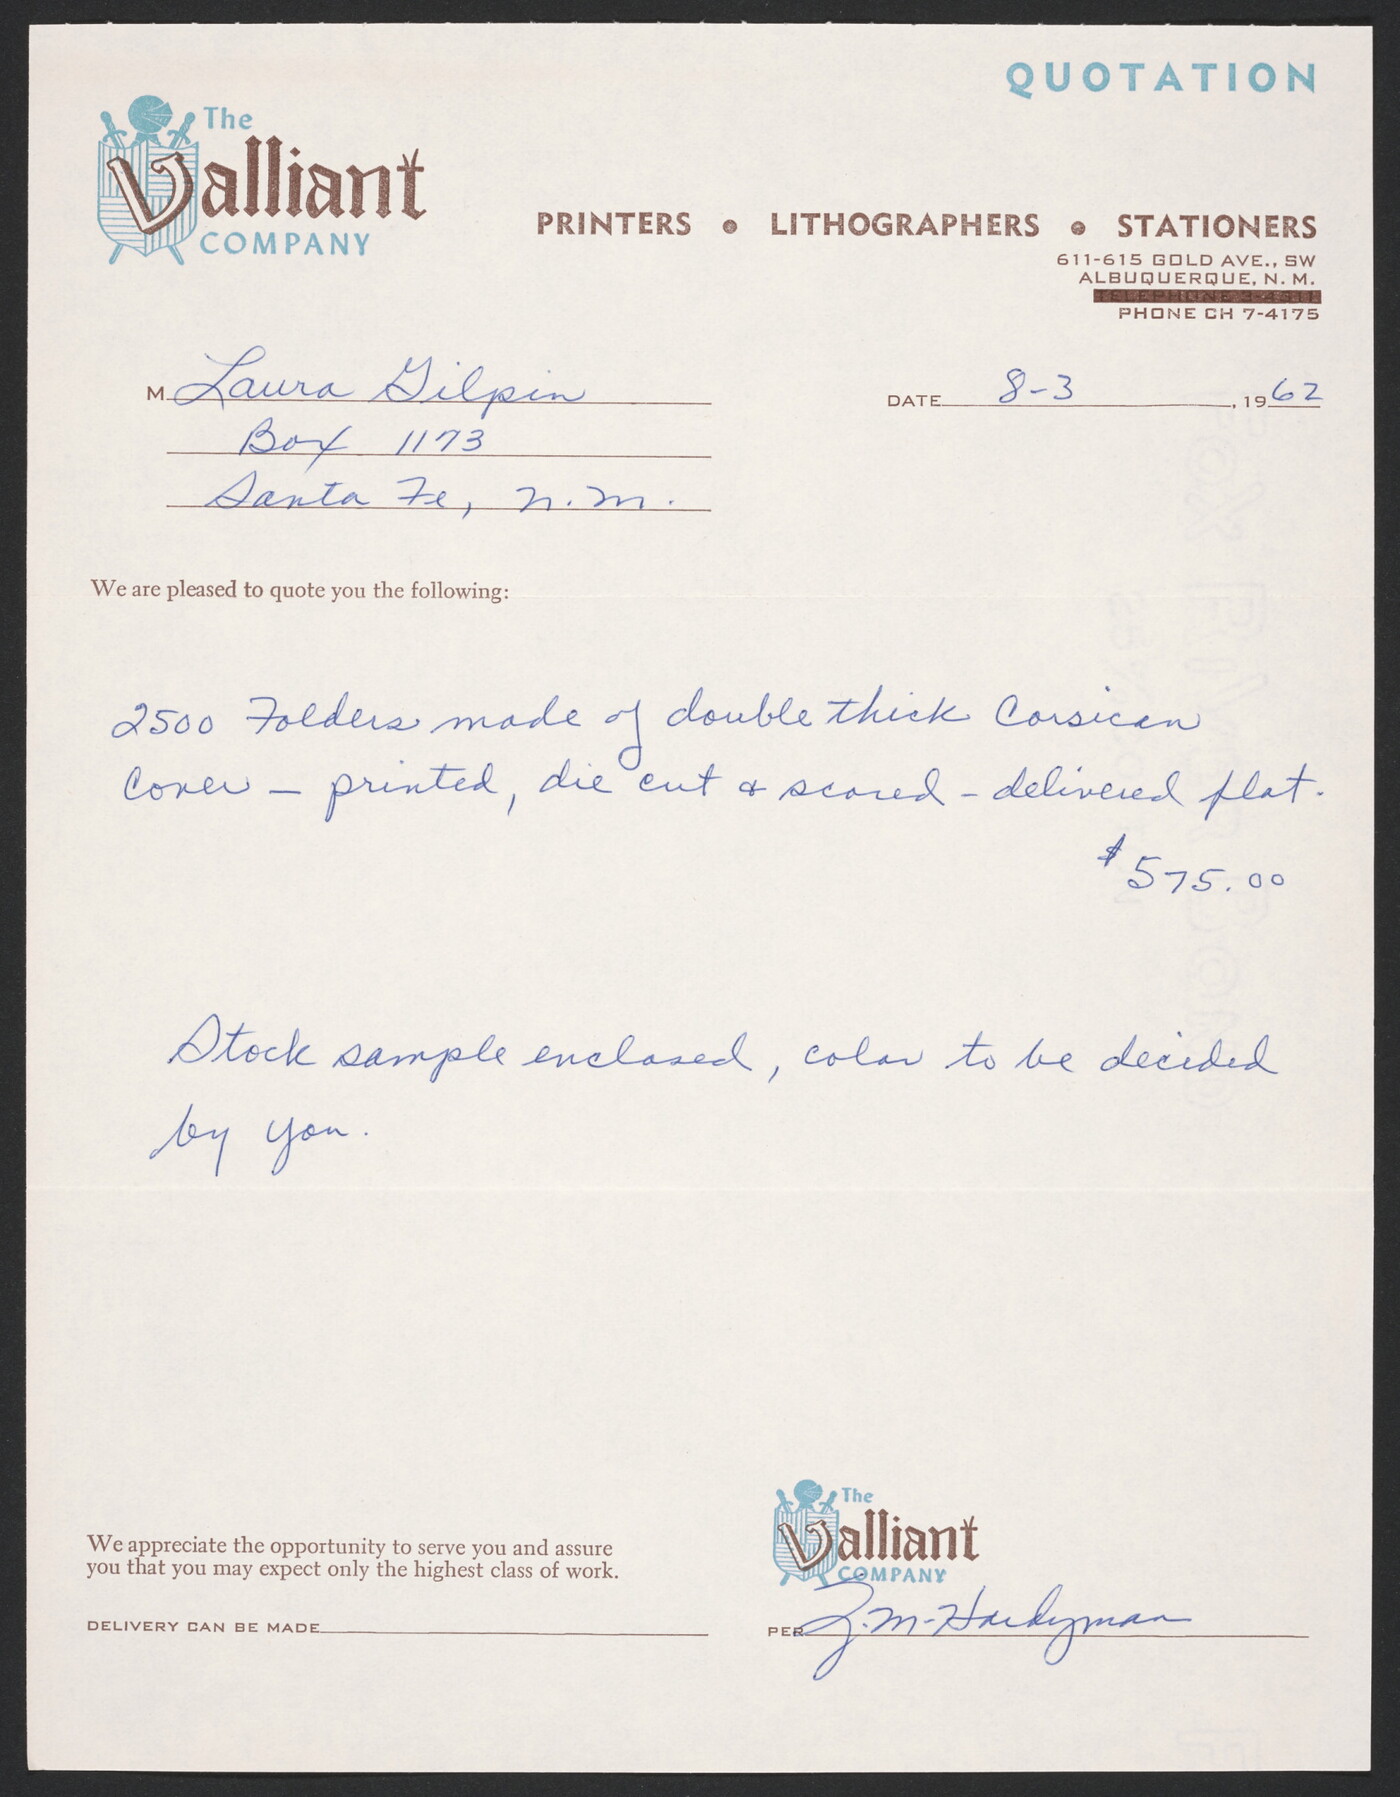 QUOTATION
The
Valliant
COMPANY
PRINTERS • LITHOGRAPHERS • STATIONERS
611-615 GOLD AVE., SW
ALBUQUERQUE, N. M.
PHONE CH 7-4175
M. Laura Gilpin
Box 1173
Santa Fe, N.M.
DATE 8-3, 1962
We are pleased to quote you the following:
2500 Folders made of double thick Corsican
Cover — printed, die cut & scored - delivered flat.
$575.00
Stock sample enclosed, color to be decided
by you.
We appreciate the opportunity to serve you and assure
you that you may expect only the highest class of work.
DELIVERY CAN BE MADE
The
Valliant
COMPANY
PER Hardyman